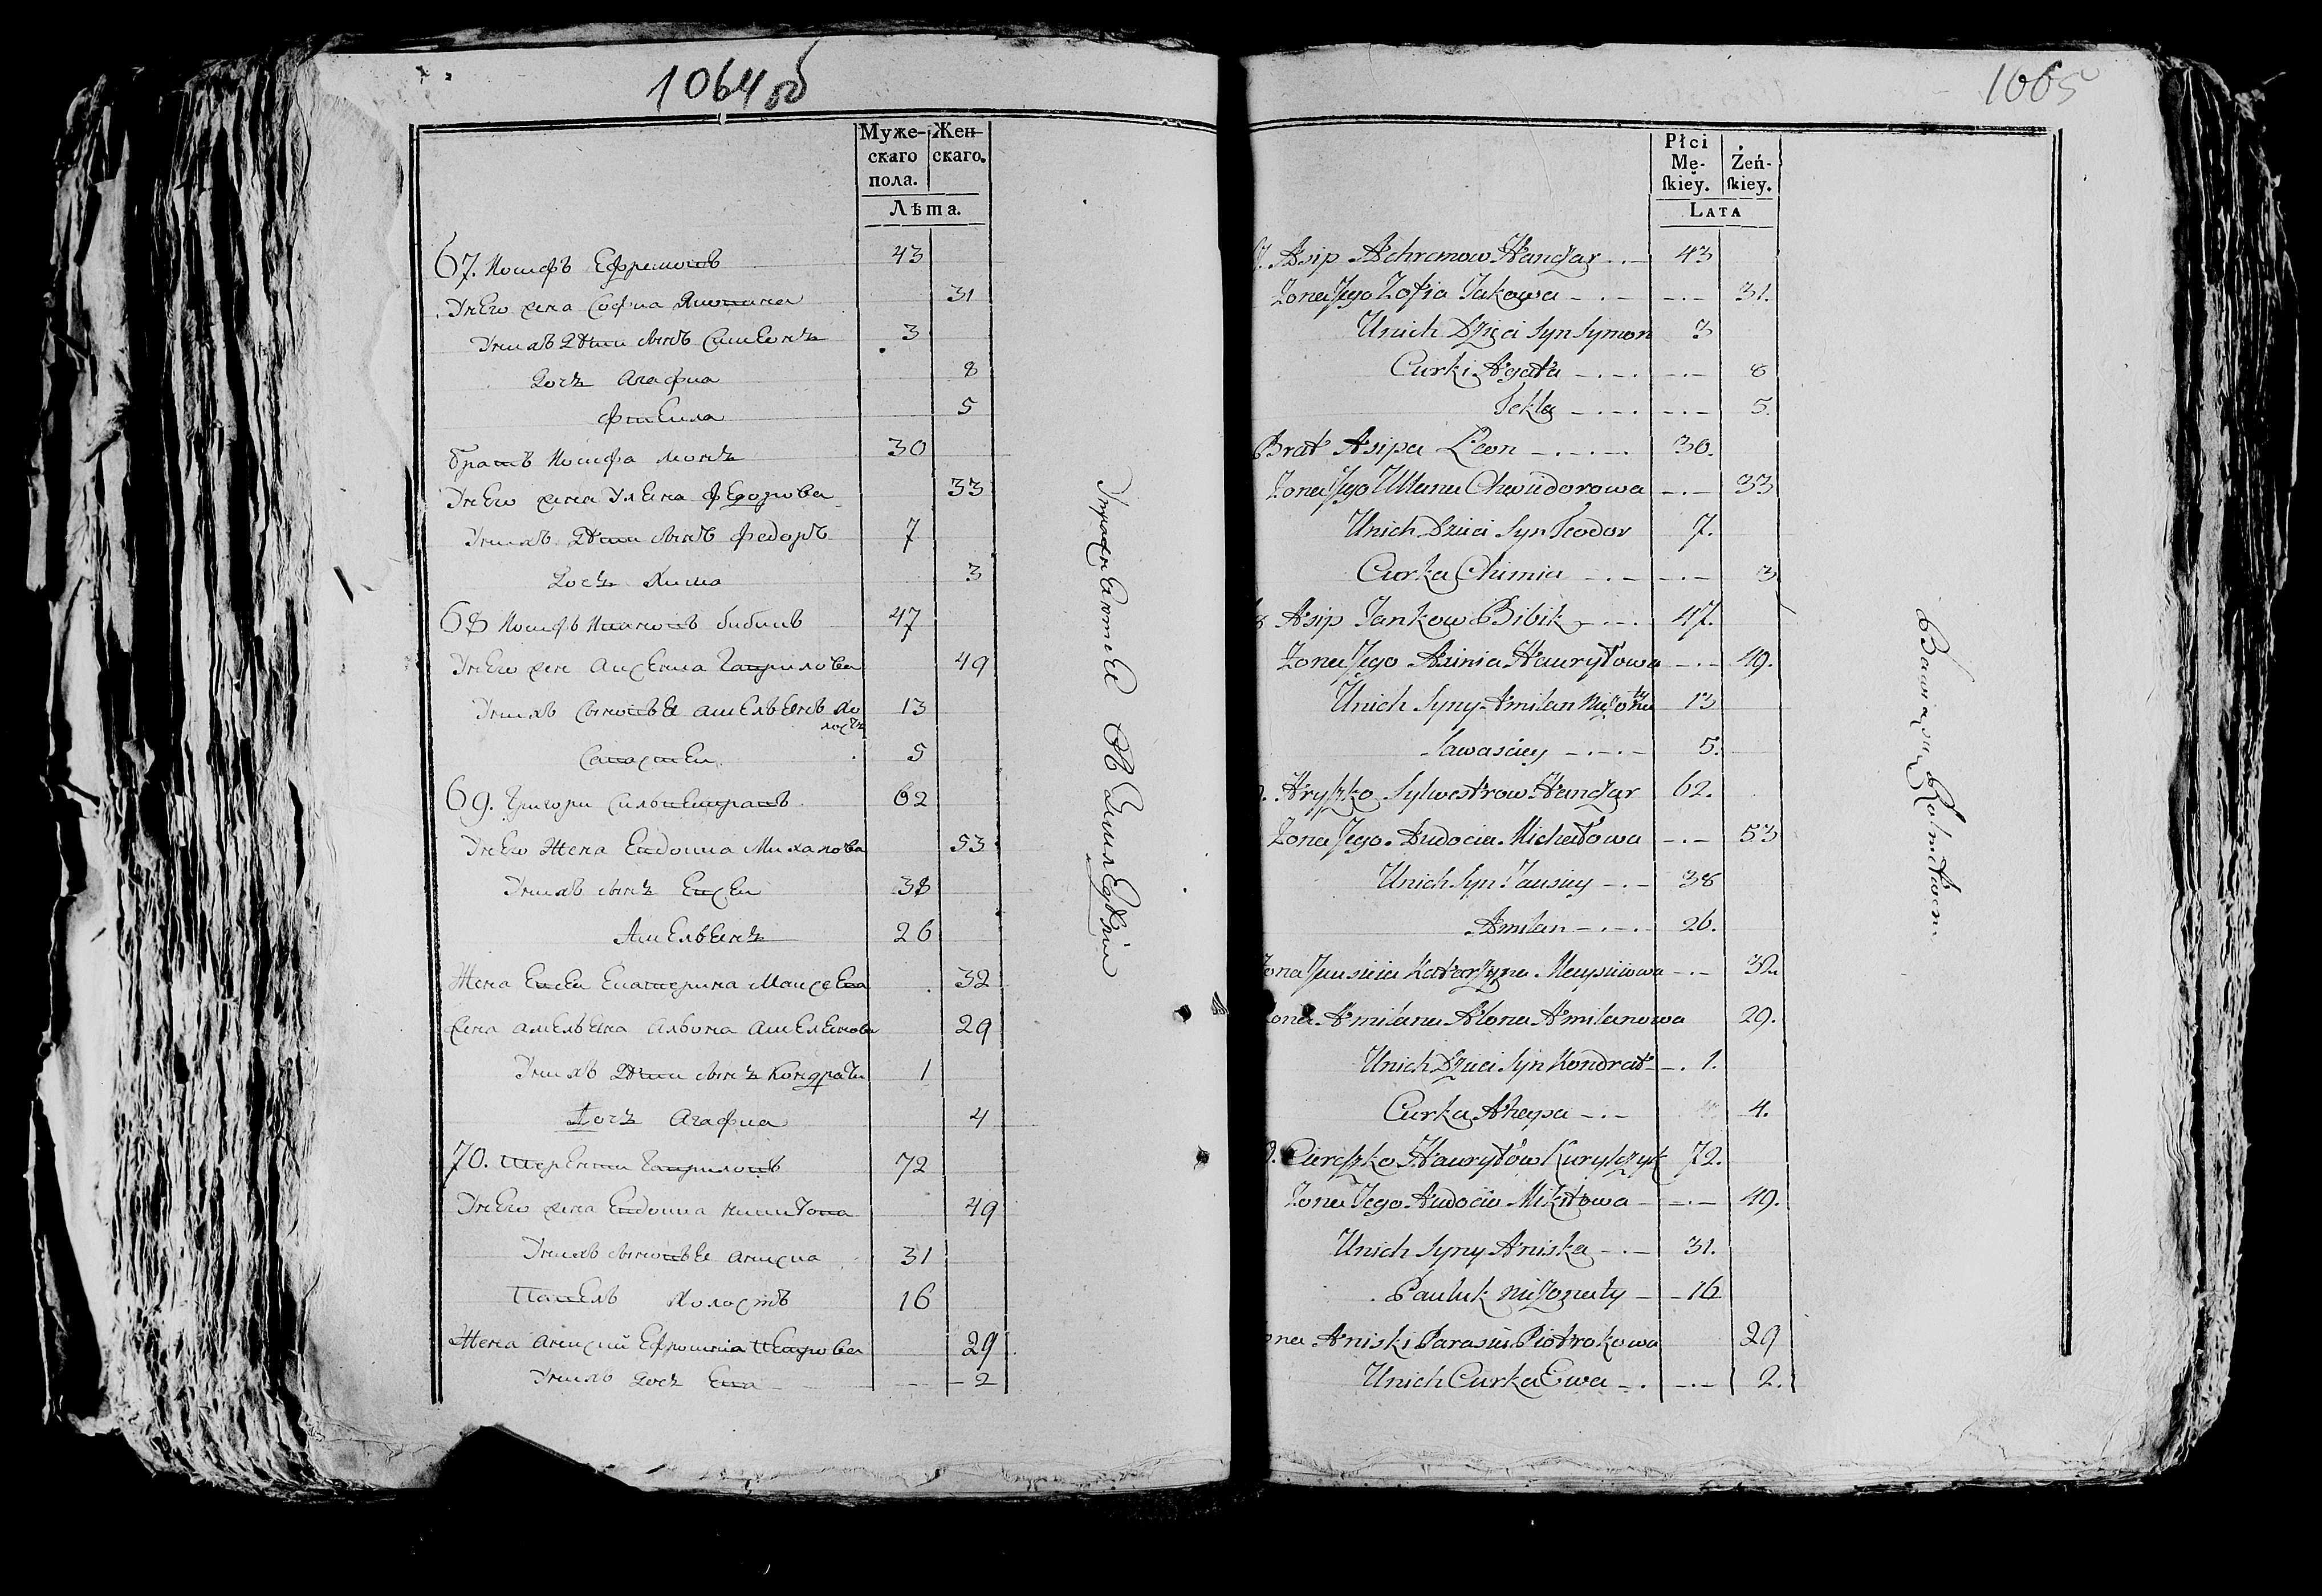 1064 об
Муже- Жен-
скаго скаго.
пола.
Лѣта.
67. Иосифъ Ефремовъ 43
У него жена Софиа Яковлева 31
У нихъ Дѣти сынъ Симеонъ 3
Дочь Агафиа 8
Фтекла 5
братъ Иосифа Леонъ 30
У него жена Улена Федорова 33
У нихъ Дѣти сынъ Федоръ 7
Дочь Химиа 3
68 Иосифъ Ивановъ бибикъ 47
У него жена Аксениа Гаврилова 49
У нихъ сыновьЕ АмЕльЕнъ Хо 13
лостъ
Савастеи 5
69. Григори Сильвестравъ 62
У него Жена Евдокиа Михалова 53
У нихъ сынъ Евсеи 38
Амельенъ 26
Жена Евсеи Екатерина Моисеева 32
Жена Амельена Альона Амеленова 29
У нихъ Дѣти сынъ Кондрати 1
Дочь Агафиа 4
70. Терентии Гавриловъ 72
У него жена Евдокиа Никитова 49
У нихъ сыновьЕ Анисиа 31
Павелъ Холостъ 16
Жена Анисии Ефросиниа Петрова 29
У нихъ Дочь Ева 2
Упражняются въ Земледѣліи
1065
Płci
Mę- Żeń-
skiey. skiey.
LATA
7. Asip Achremow Hanczar 43
Zona Jego Zofia Jakowa 31.
Unich Dzieci Syn Symon 3
Curki Agata 8
Tekla 5.
Brat Asipa Leon 30.
Zona Jego Ullana Chwiedorowa 33
Unich Dzieci Syn Teodor 7.
Curka Chimia 3
8 Asip Jankow Bibik 47.
Zona Jego Axinia Hauryłowa 49.
Unich Syny Amilan niezonaty 13
Sawasciey 5.
9. Hryszko Sylwestrow Hanczar 62.
Zona Jego Audocia Michałowa 53
Unich Syn Jausiey 38
Amilan 26.
Zona Jausieia Katarzyna Meysiiowa 32.
Zona Amilana Alona Amilanowa 29.
Unich Dzieci Syn Kondrat 1.
Curka Aheysa 4.
0. Ciereszko Hauryłow Kurylczyk 72.
Zona Jego Audocia Mikitowa 49.
Unich Syny Aniska 31.
Pauluk niezonaty 16
ona Aniski Parasia Piotrakowa 29
Unich Curka Ewa 2.
Bawią się Rolnictwem